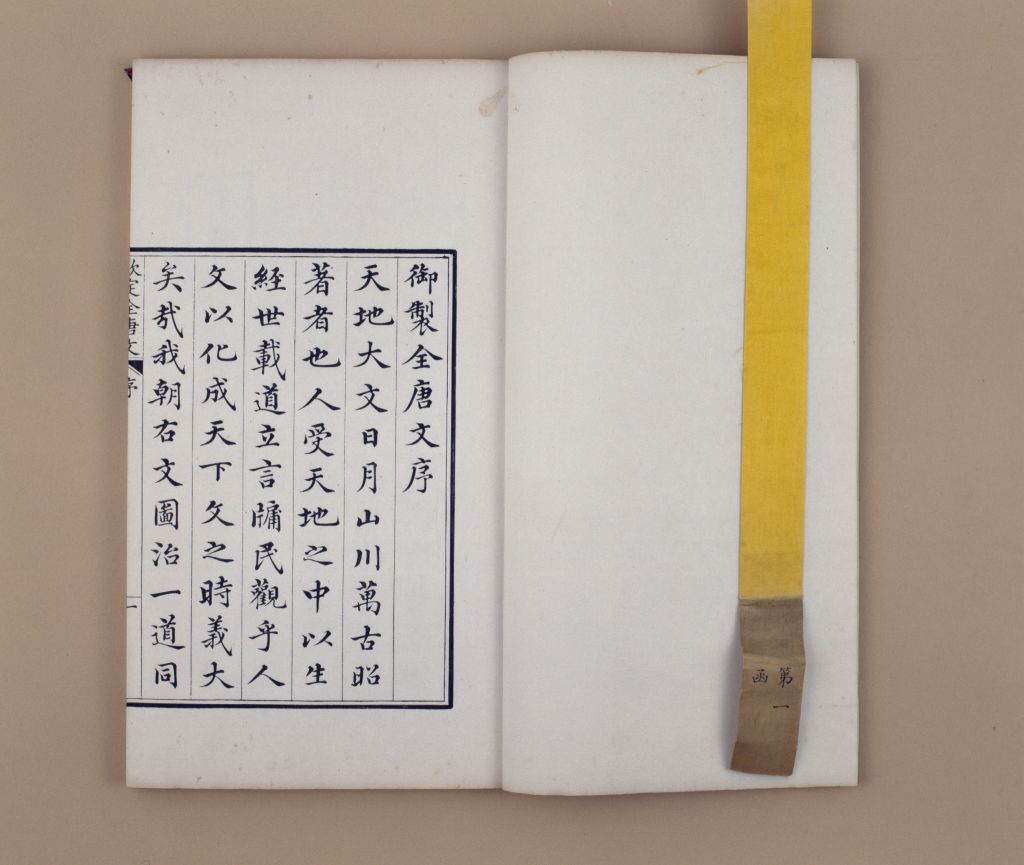 御製全唐文序
天地大文日月山川萬古昭
著者也人受天地之中以生
經世載道立言牖民觀乎人
文以化成天下文之時義大
矣哉我朝右文圖治一道同
欽定全唐文 序 一
第一
函